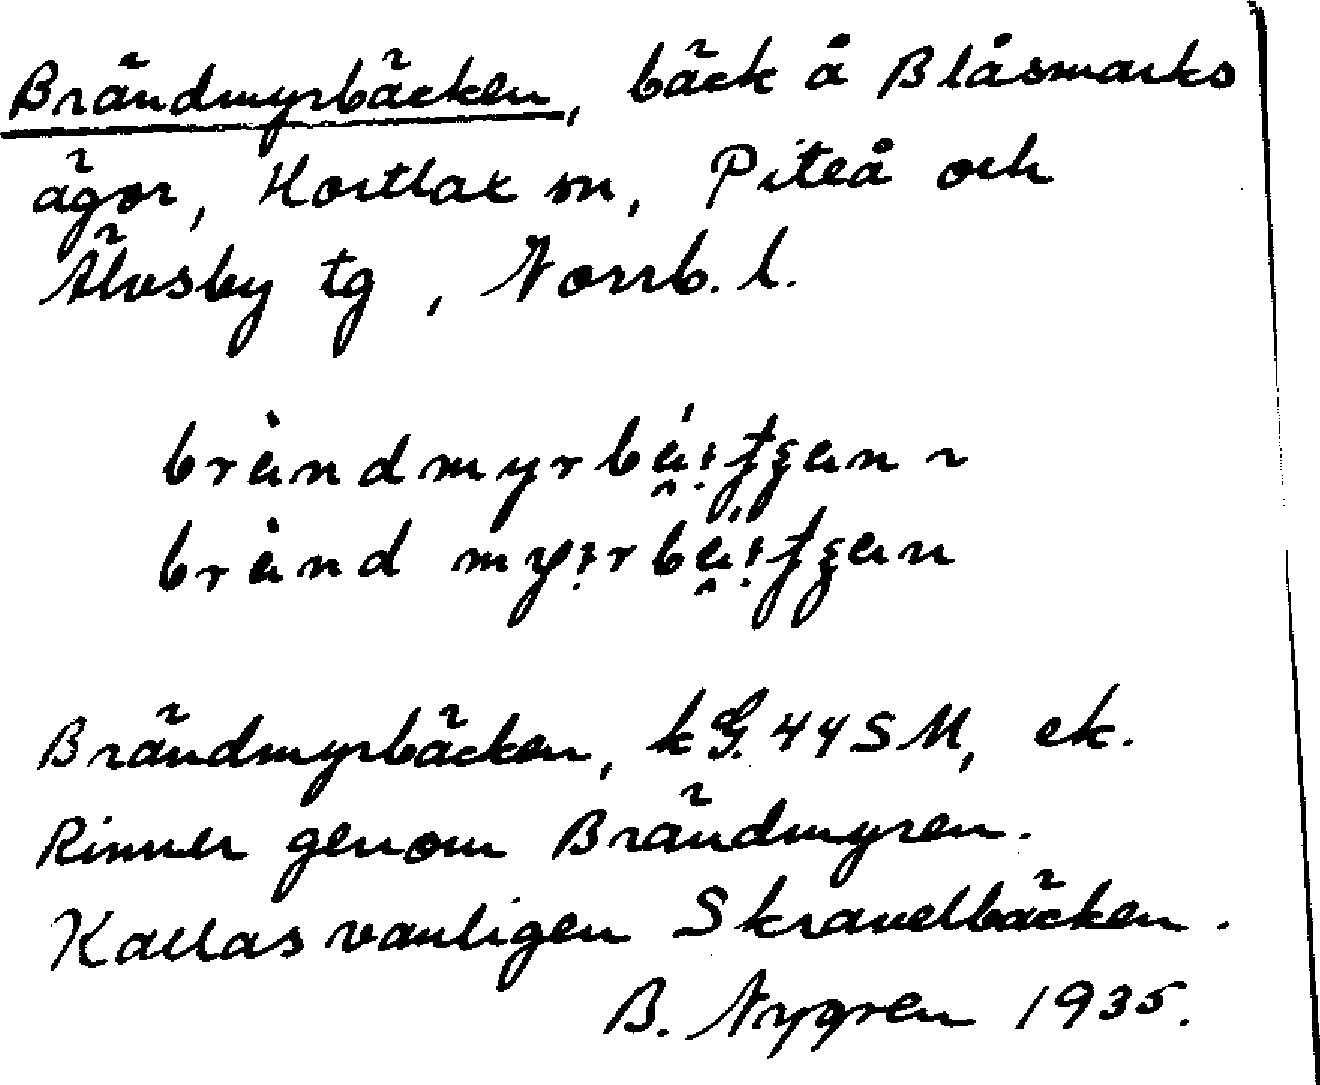 Brändmyrbäcken, bäck å Blåsmarks
ägor, Hortlax sn, Piteå och
Älvsby tg, Norrb. l.
Brändmyrbäcken, kG. 44 SM, ek.
Rinner genom Brändmyren.
Kallas vanligen Skravelbäcken.
B. Nygren 1935.